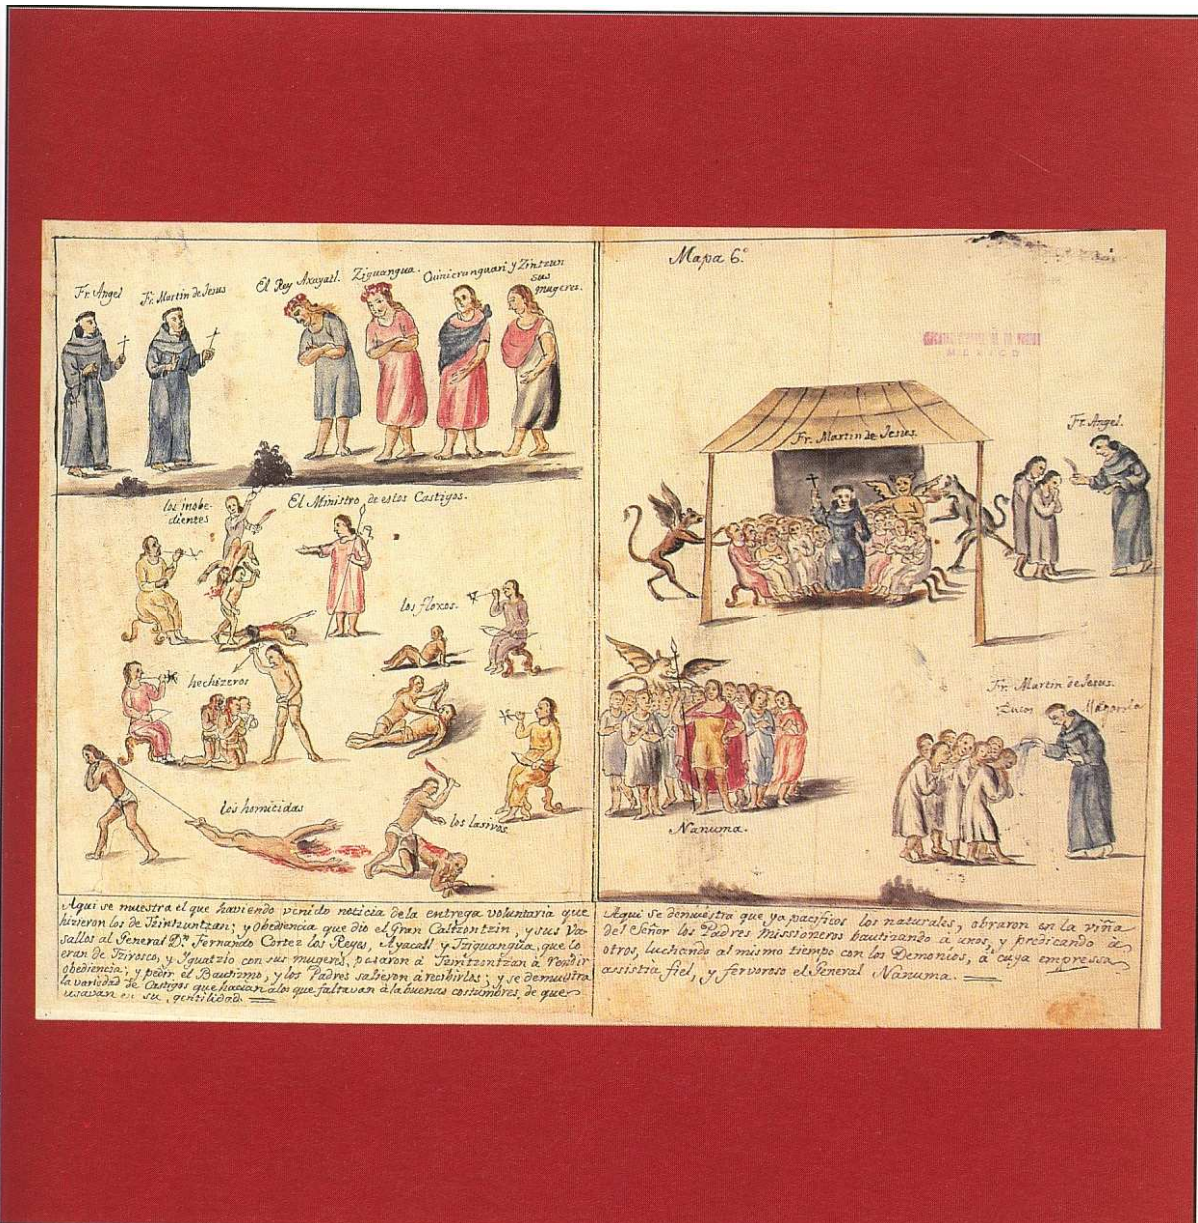 Fr. Angel
Fr. Martin de Jesus
El Rey Axayatl.
Ziguangua.
Quinicranguari y Zintzun
sus
mugeres.
los inobe-
dientes
El Ministro de estos Castigos.
los floxos.
hechizeros
los homicidas
los lasivos
Aqui se muestra el que haviendo venido noticia de la entrega voluntaria que
hizieron los de Tzintzuntzan; y obediencia que dio el Gran Caltzontzin, y sus Va-
sallos al General Dn. Fernando Cortez los Reyes, Ayacatl y Tziguangua, que lo
eran de Tzirosco, y Iguatzio con sus mugeres, pasaron à Tzintzontzan à rendir
obediencia; y pedir el Bautismo, y los Padres salieron à recibirlos; y se demuestra
la variedad de Castigos que hacian a los que faltavan à la buenas costumbres, de que
usavan en su gentilidad.
Mapa 6º
MEXICO
Fr. Martin de Jesus.
Fr. Angel.
Nanuma.
Fr. Martin de Jesus.
Aqui se demuestra que ya pacificos los naturales, obraron en la viña
del Señor los Padres missioneros bautizando à unos, y predicando à
otros, luchando al mismo tiempo con los Demonios, à cuya empressa
assistia fiel, y fervoroso el General Nanuma.